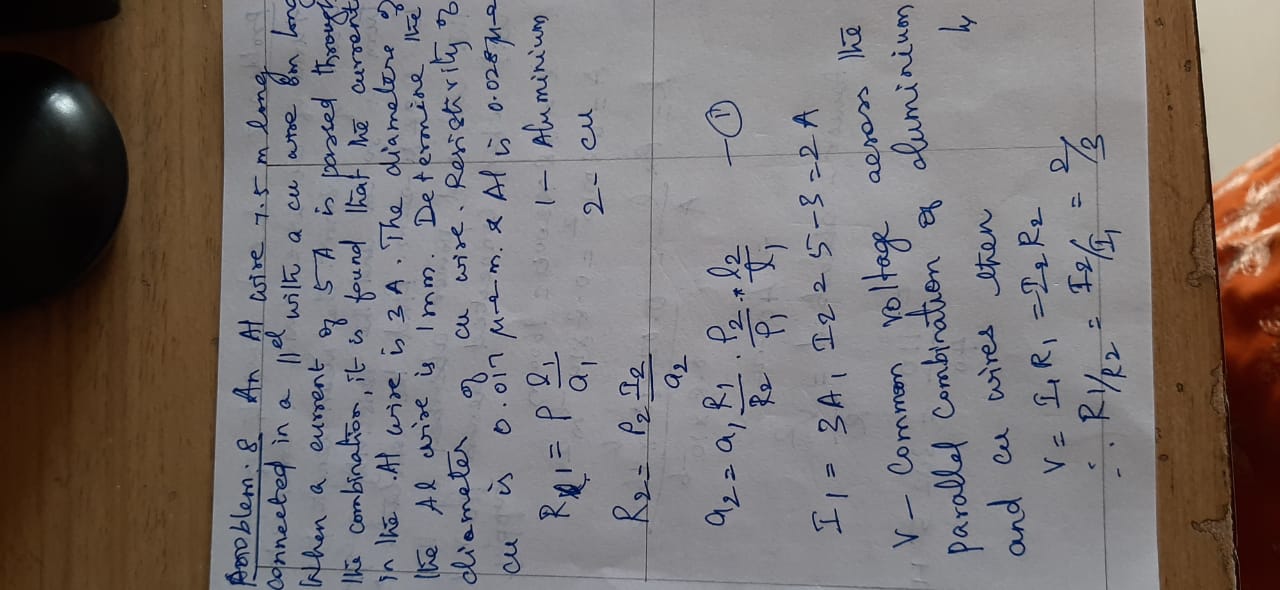 Problem.8 An Al wire 7.5 m long
connected in a 11el with a cu wire 6m long
When a current of 5 A is passed through
the combination, it is found that the current
in the Al wire is 3 A. The diameter of
the Al wire is 1mm. Determine the
diameter of cu wire. Resistivity of
cu is 0.017 μ-e-m. & Al is 0.028 μ-e
R1 = ρ l1/a1 1 - Aluminium
R2 = ρ2 I2/a2 2 - cu
a2 = a1 R1/R2 . ρ2/ρ1 * l2/l1 - (1)
I1 = 3A1 I2 = 5-3 = 2A
V - Common voltage across the
parallel combination of aluminium
and cu wires then
V = I1 R1 = I2 R2
∴ R1/R2 = I2/I1 = 2/3